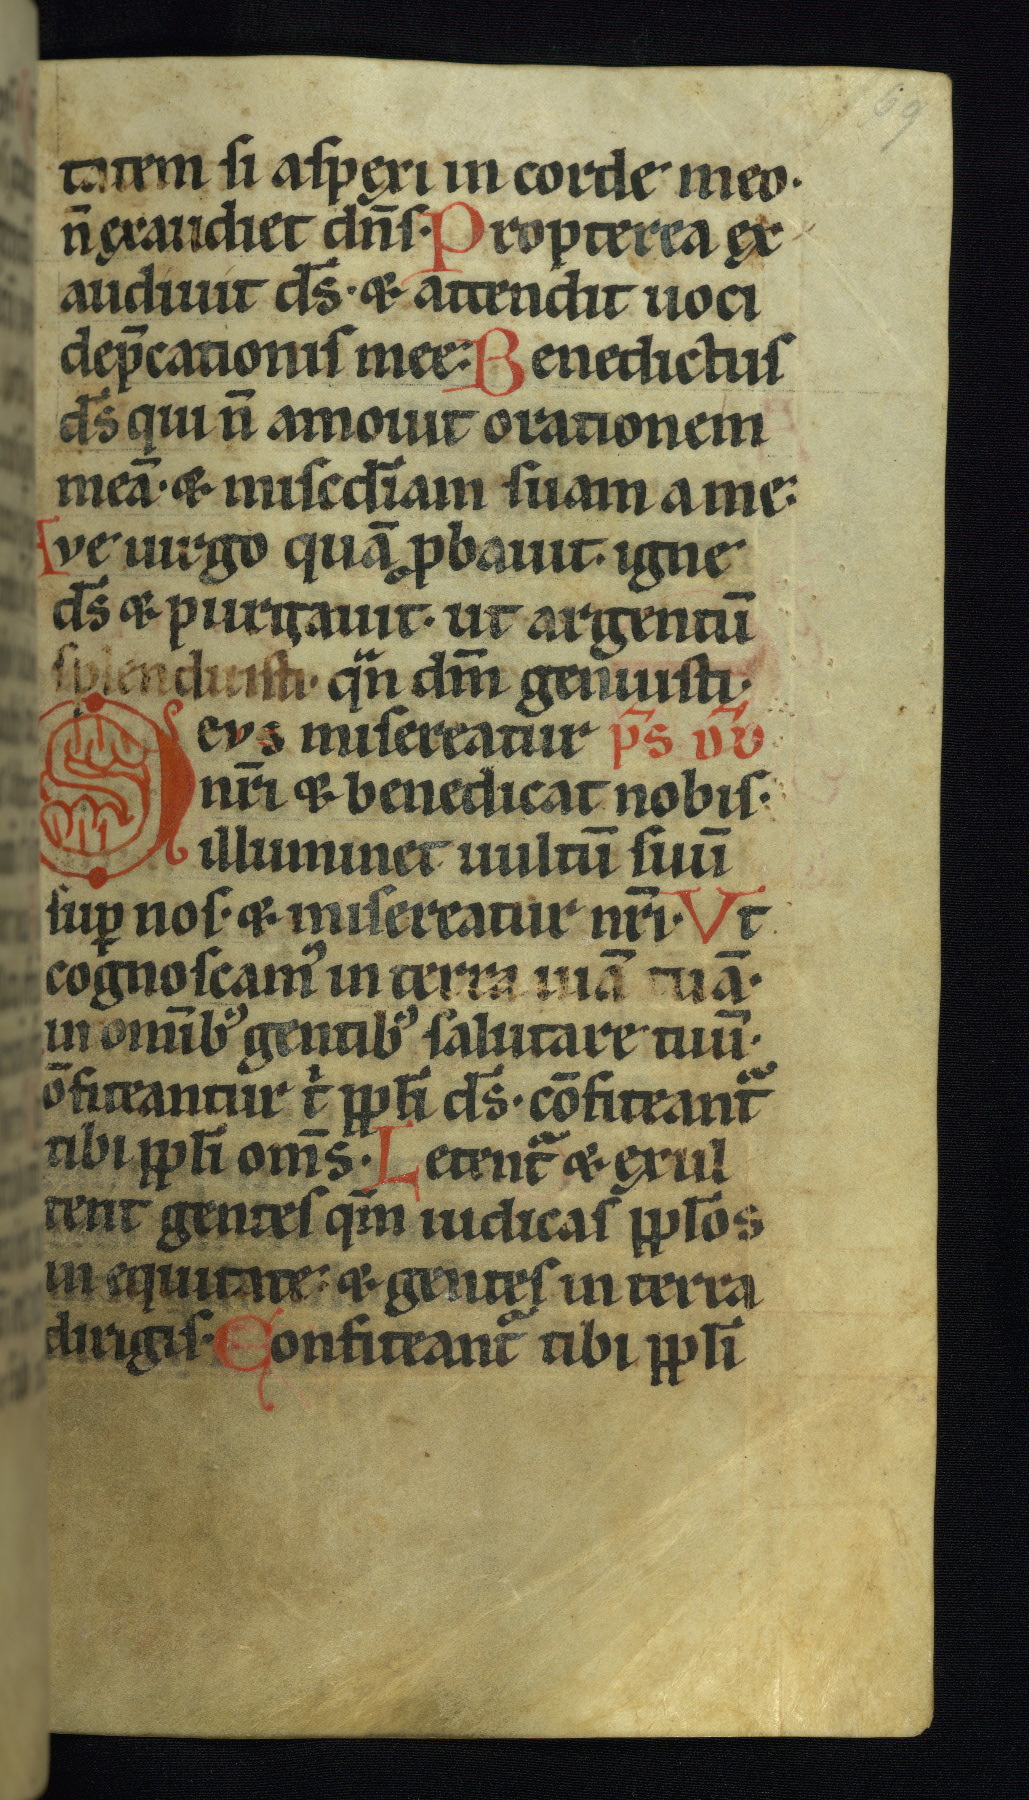 69
tatem si aspexi in corde meo·
n̄ exaudiet dn̄s· Propterea ex
audiuit ds̄· & attendit uoci
dep̄cationis mee: Benedictus
ds̄ qui n̄ amouit orationem
meā· & misc̄diam suam a me:
Ave uirgo quā ꝓbauit· igne
ds̄ & purgauit· ut argentū
splenduisti· qn̄ dn̄m genuisti·
Deus misereatur ps̄
nr̄i & benedicat nobis·
illuminet uultū suū
suꝑ nos· & misereatur nr̄i· Vt
cognoscamꝰ in terra uiā tuā·
in omībꝰ gentibꝰ salutare tuū·
ōfiteantur t̄ ppl̄i ds̄· cōfiteant᷑
tibi ppl̄i om̄s· Letent᷑ & exul
tent gentes qm̄ iudicas ppl̄os
in equitate: & gentes in terra
dirigis· Confiteant᷑ tibi ppl̄i